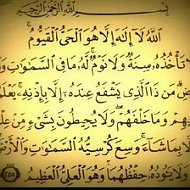 بِسْمِ اللَّهِ الرَّحْمَٰنِ الرَّحِيمِ
اللَّهُ لَا إِلَٰهَ إِلَّا هُوَ الْحَيُّ الْقَيُّومُ
تَأْخُذُهُ سِنَةٌ وَلَا نَوْمٌ لَهُ مَا فِي السَّمَٰوَٰتِ
مَنْ ذَا الَّذِي يَشْفَعُ عِنْدَهُ إِلَّا بِإِذْنِهِ يَعْلَمُ
وَمَا خَلْفَهُمْ وَلَا يُحِيطُونَ بِشَيْءٍ مِنْ
بِمَا شَاءَ وَسِعَ كُرْسِيُّهُ السَّمَٰوَٰتِ
يَئُودُهُ حِفْظُهُمَا وَهُوَ الْعَلِيُّ الْعَظِيمُ